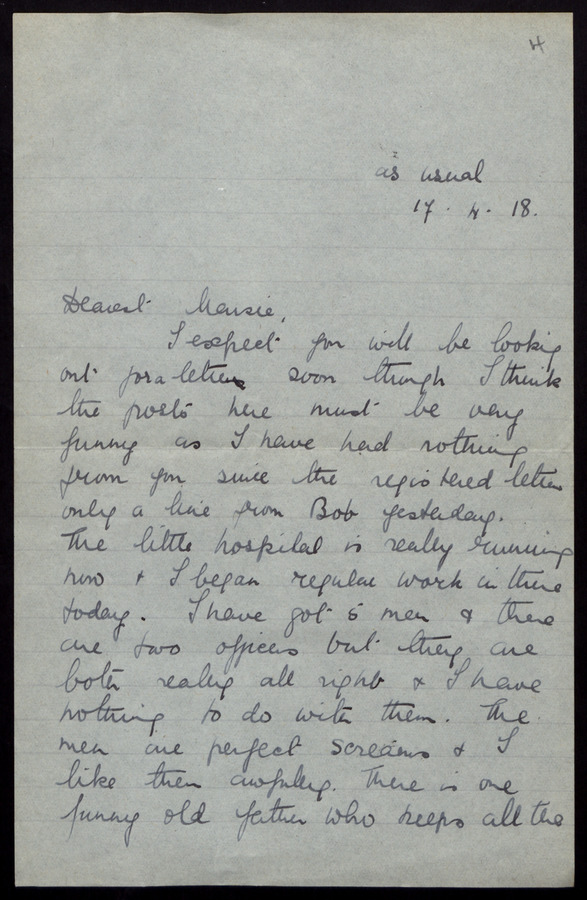 4
as usual
17. 4. 18.
Dearest Mousie,
I expect you will be looking
out for a letter soon though I think
the posts here must be very
funny as I have had nothing
from you since the registered letter
only a line from Bob yesterday.
The little hospital is really running
now & I began regular work in there
today. I have got 5 men & there
are two officers but they are
both really all right & I have
nothing to do with them. The
men are perfect screams & I
like them awfully. There is one
funny old father who keeps all the